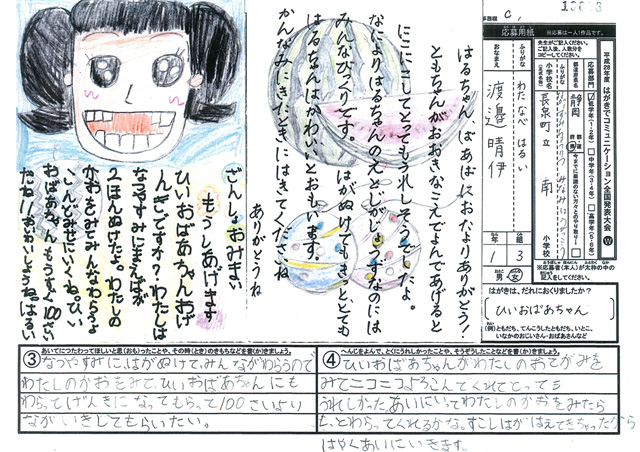 ざんしょおみまい
もうしあげます
ひいおばあちゃんおげ
んきですか?わたしは
なつやすみにまえばが
2ほんぬけたよ。わたしの
かおをみてみんなわらうよ
こんどみせにいくね。ひい
おばあちゃんもうすぐ100さい
だね!おいわいしようね。はるい
はるちゃん、ばあばにおたよりありがとう!
ともちゃんがおおきなこえでよんであげると
にこにこしてとてもうれしそうでしたよ。
なによりはるちゃんのえとじがじょうずなのには
みんなびっくりです。はがぬけてもきっととても
はるちゃんはかわいいとおもいます。
かんなみにきたときにはきてくださいね
ありがとうね
応募用紙
※応募は一人1作品です。
平成28年度 はがきでコミュニケーション全国発表大会
応募部門
低学年(1・2年)
中学年(3・4年)
高学年(5・6年)
静岡
長泉町立 南 小学校
ふりがな
わたなべ はるい
おなまえ
渡邉 晴伊
1年
3組
男 女
※応募者(本人)が太枠の中の記入をしてください。
はがきは、だれにおくりましたか?
ひいおばあちゃん
(例)ともだち、てんこうしたともだち、いとこ、
いなかのおじいさん・おばあさんなど
③あいてにつたわってほしいと思(おも)ったことや、その時(とき)のきもちなどを書(か)きましょう。
なつやすみに、はがぬけて、みんながわらうので
わたしのかおをみて、ひいおばあちゃんにも
わらってげんきになってもらって100さいより
ながいきしてもらいたい。
④へんじをよんで、とくにうれしかったことや、そうぞうしたことなどを書(か)きましょう。
ひいおばあちゃんがわたしのおてがみを
みてニコニコよろこんでくれてとっても
うれしかった。あいにいってわたしのかおをみたら
もっとわらってくれるかな。すこしはがはえてきちゃったから
はやくあいにいきます。